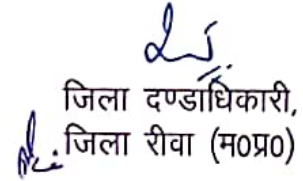 जिला दण्डाधिकारी,
जिला रीवा (म0प्र0)